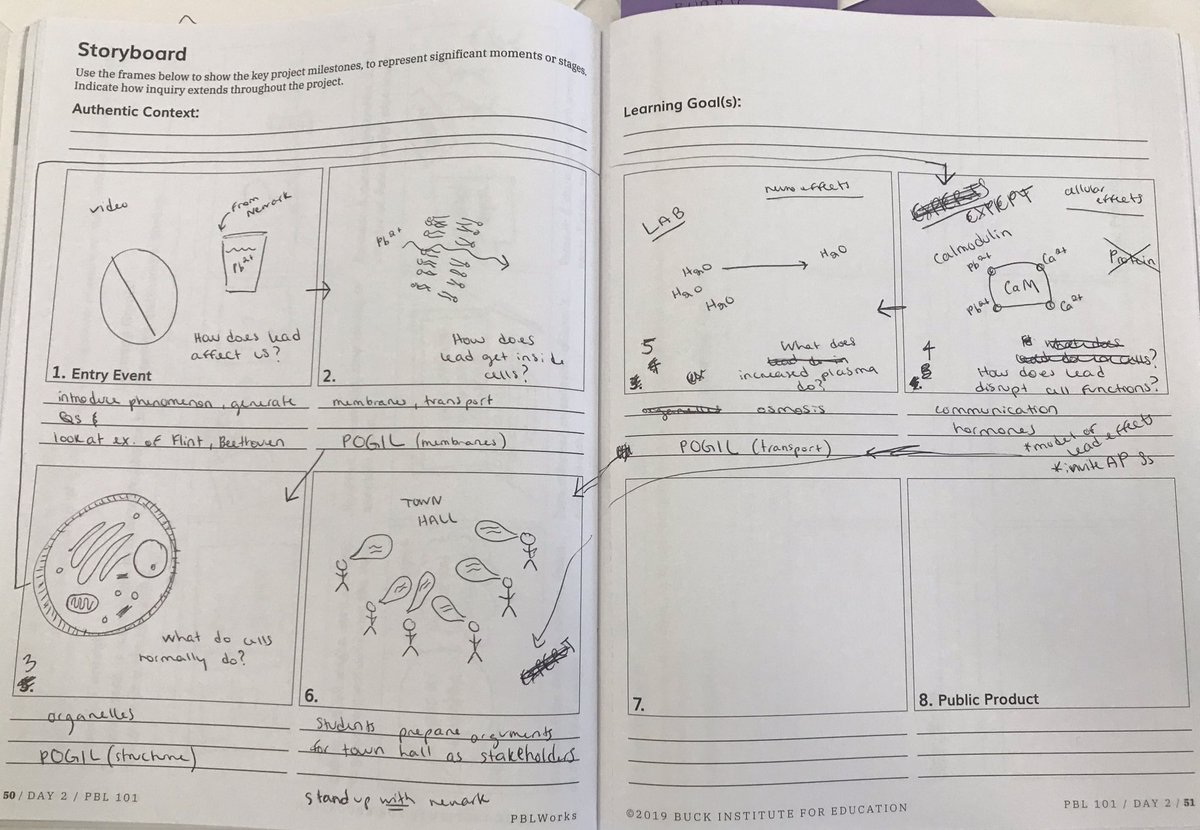 Storyboard
Use the frames below to show the key project milestones, to represent significant moments or stages.
Indicate how inquiry extends throughout the project.
Authentic Context:
video
from
Newark
Pb2+
How does lead
affect us?
1. Entry Event
introduce phenomenon, generate
Qs &
look at ex. of Flint, Beethoven
Pb2+
How does
lead get inside
cells?
2.
membranes, transport
POGIL (membranes)
What do cells
normally do?
3
organelles
POGIL (structure)
TOWN
HALL
EXPERT
6.
Students prepare arguments
for town hall as stakeholders
Stand up with newark
50 / DAY 2 / PBL 101
PBLWorks
Learning Goal(s):
LAB
neuro effects
H2O
H2O
H2O
H2O
5
What does
increased plasma
do?
organelles osmosis
POGIL (transport)
EXPERTS
EXPERT
cellular
effects
Calmodulin
Protein
Pb2+
Ca2+
CaM
Pb2+
Ca2+
4
what does
How does lead
disrupt cell functions?
communication
hormones
*model of
lead effects
*invite AP Ss
7.
8. Public Product
©2019 BUCK INSTITUTE FOR EDUCATION
PBL 101 / DAY 2 / 51